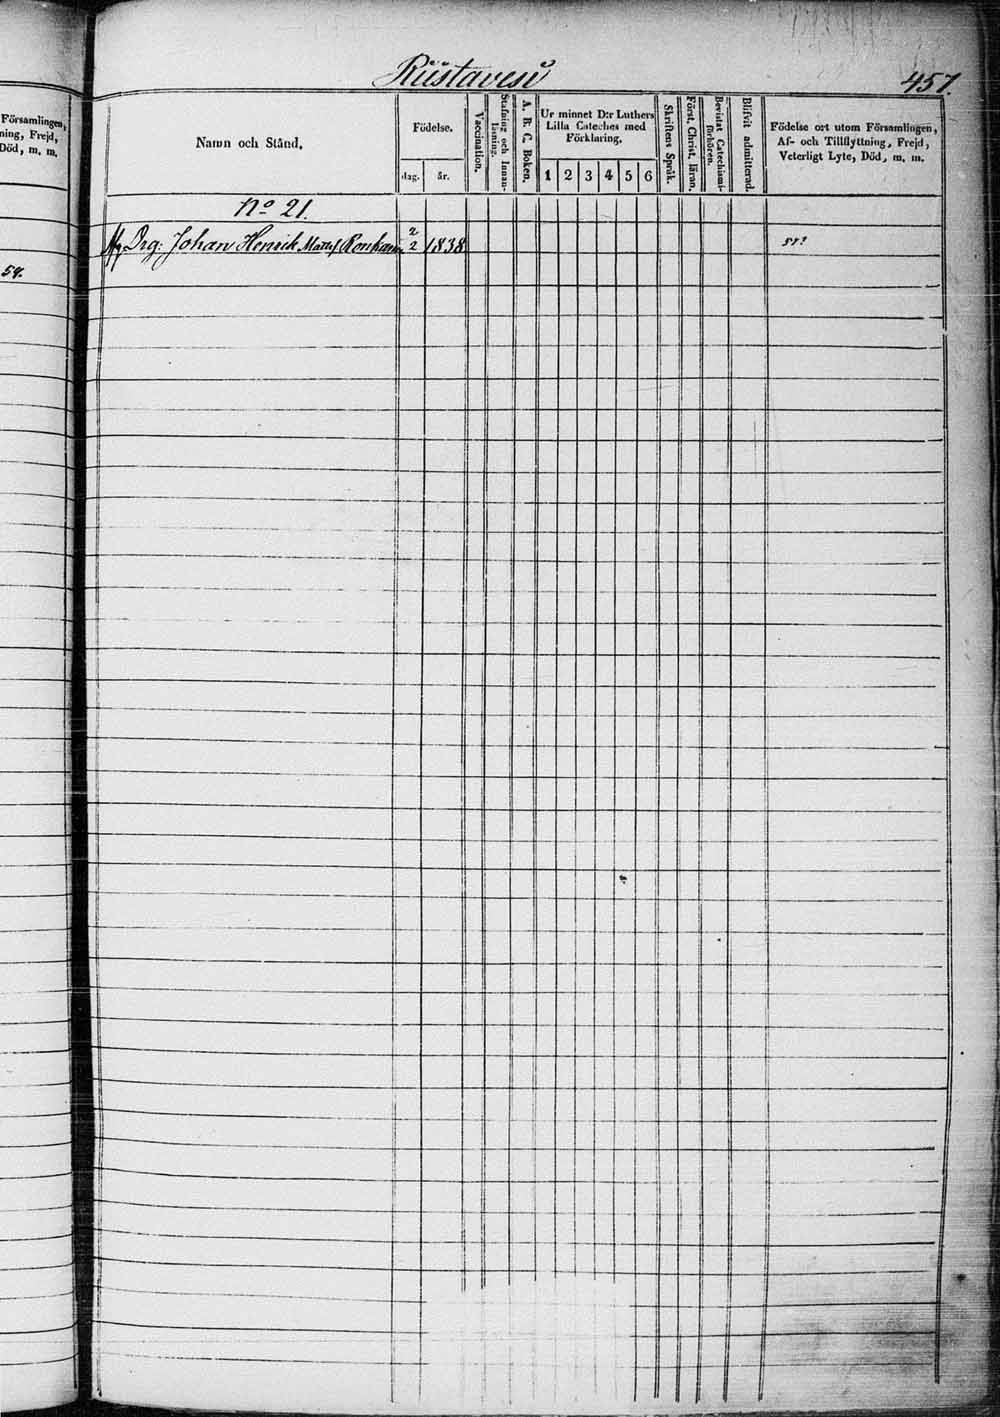 Rüstavesi
457.
Församlingen,
ning, Frejd,
Död, m. m.
Namn och Stånd.
Födelse.
dag.
år.
Vaccination.
Stafning och Innan-
läsning.
A. B. C. Boken.
Ur minnet D:r Luthers
Lilla Cateches med
Förklaring.
1 2 3 4 5 6
Skriftens Språk.
Först. Christ. läran.
Bevistat Catechismi-
förhören.
Blifvit admitterad.
Födelse ort utom Församlingen,
Af- och Tillflyttning, Frejd,
Veterligt Lyte, Död, m. m.
No 21.
Drg: Johan Henrik Matts Ronkainen 2/2 1838
57?
57.